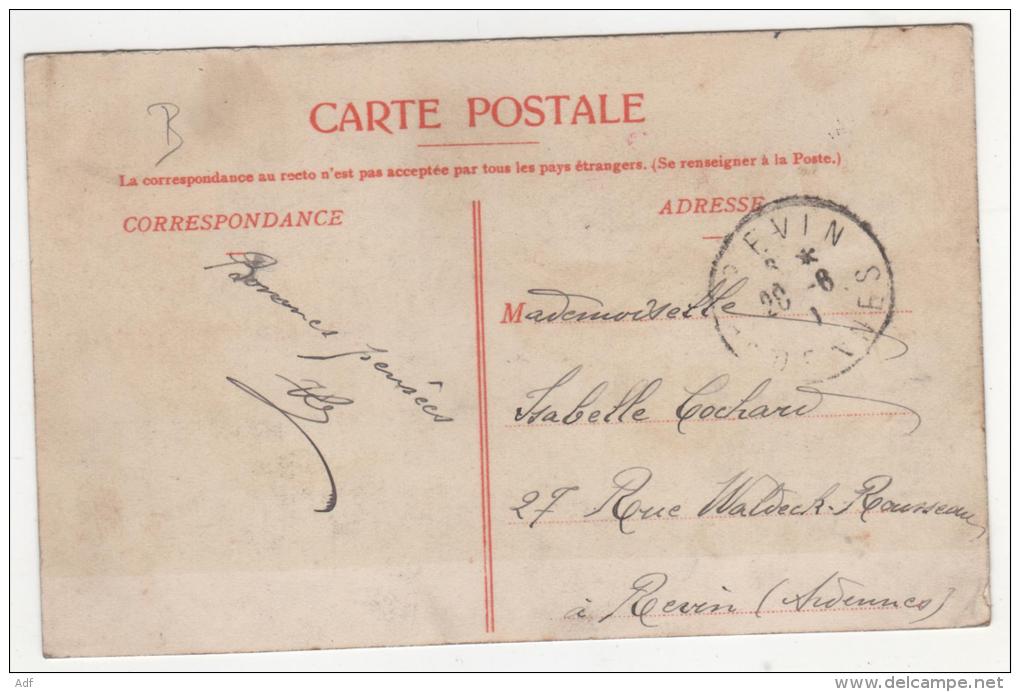 B
CARTE POSTALE
La correspondance au recto n'est pas acceptée par tous les pays étrangers. (Se renseigner à la Poste.)
CORRESPONDANCE
Bonnes pensées
ADRESSE
EVIN
20 -6
Mademoiselle
Isabelle Cochard
27 Rue Waldeck-Rousseau
à Revin (Ardennes)
Adf
delcampe.net